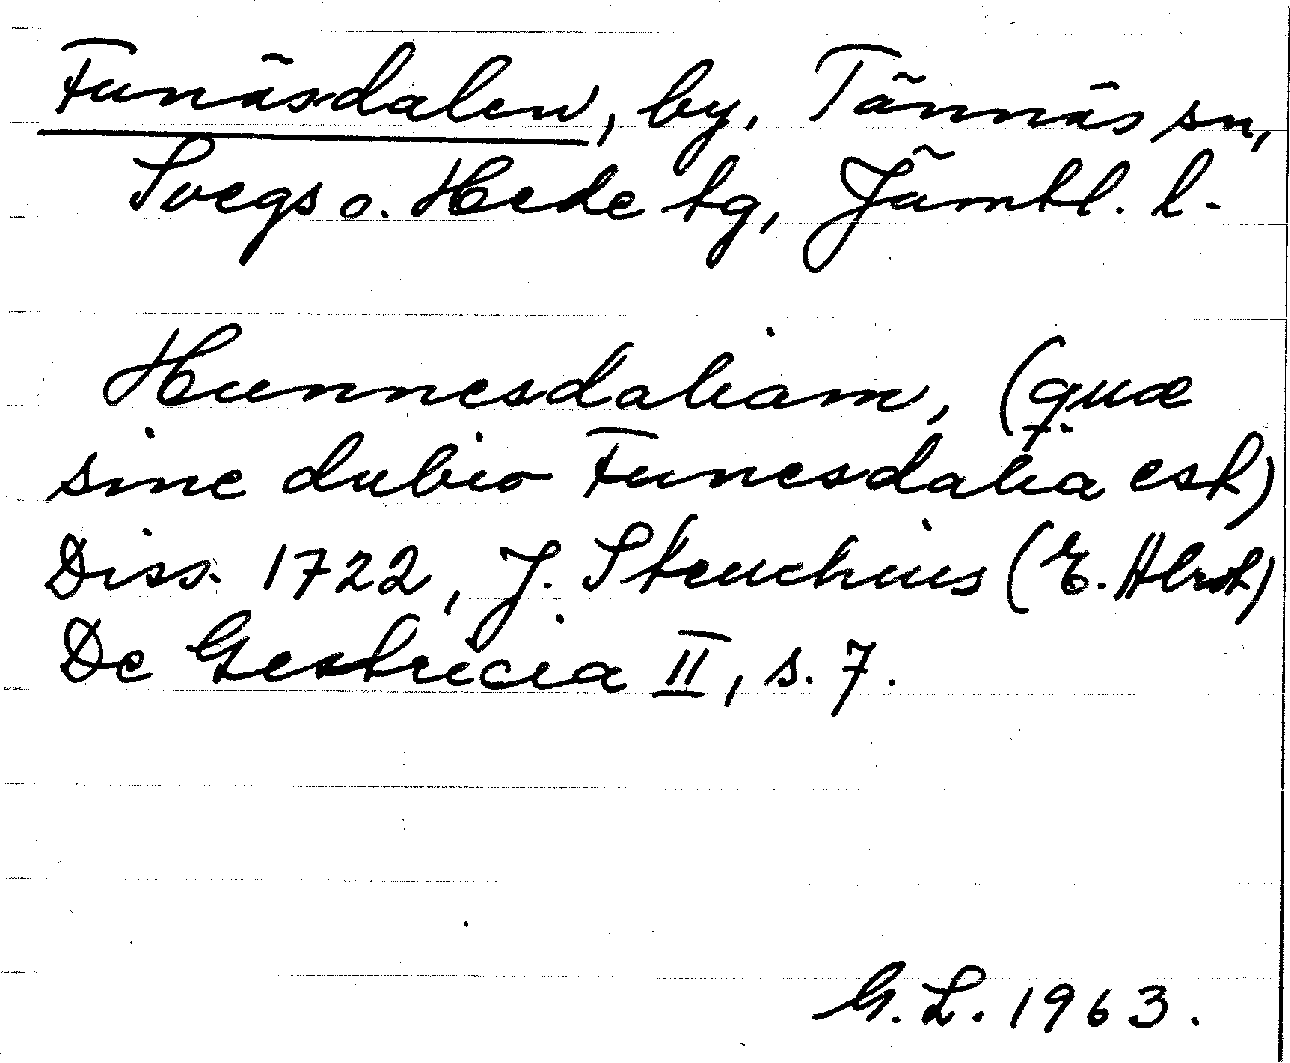 Funäsdalen, by, Tännäs sn,
Svegs o. Hede tg, Jämtl. l.
Hunnesdaliam, (quæ
sine dubio Funesdalia est)
Diss. 1722, J. Steuchius (E. Alrot)
De Gestricia II, s. 7.
G. L. 1963.